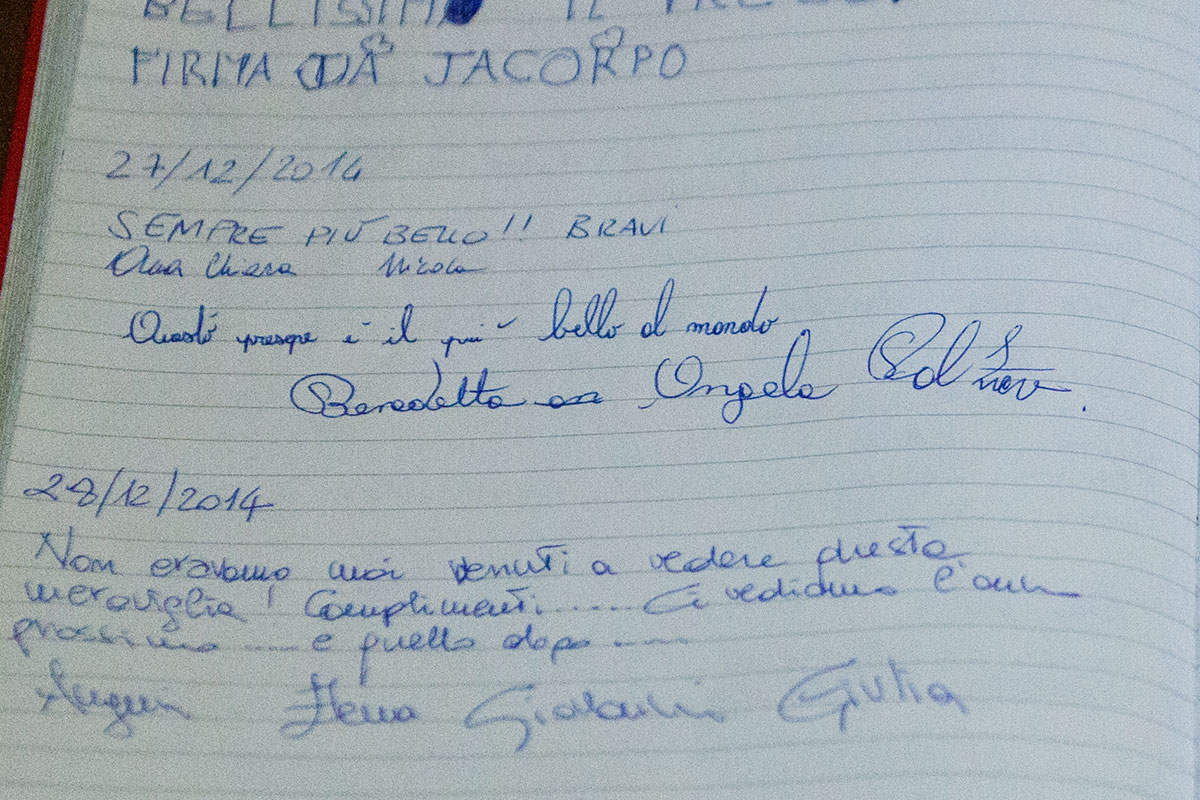 BELLISSIMO IL PRESE
FIRMA DA JACOPO
27/12/2014
SEMPRE PIÙ BELLO!! BRAVI
Anna Chiara Nicola
Questo presepe è il più bello al mondo
Benedetta Angela
28/12/2014
Non eravamo mai venuti a vedere questa
meraviglia! Complimenti ..... Ci vediamo l'anno
prossimo ..... e quello dopo .....
Auguri Elena Giovanni Giulia